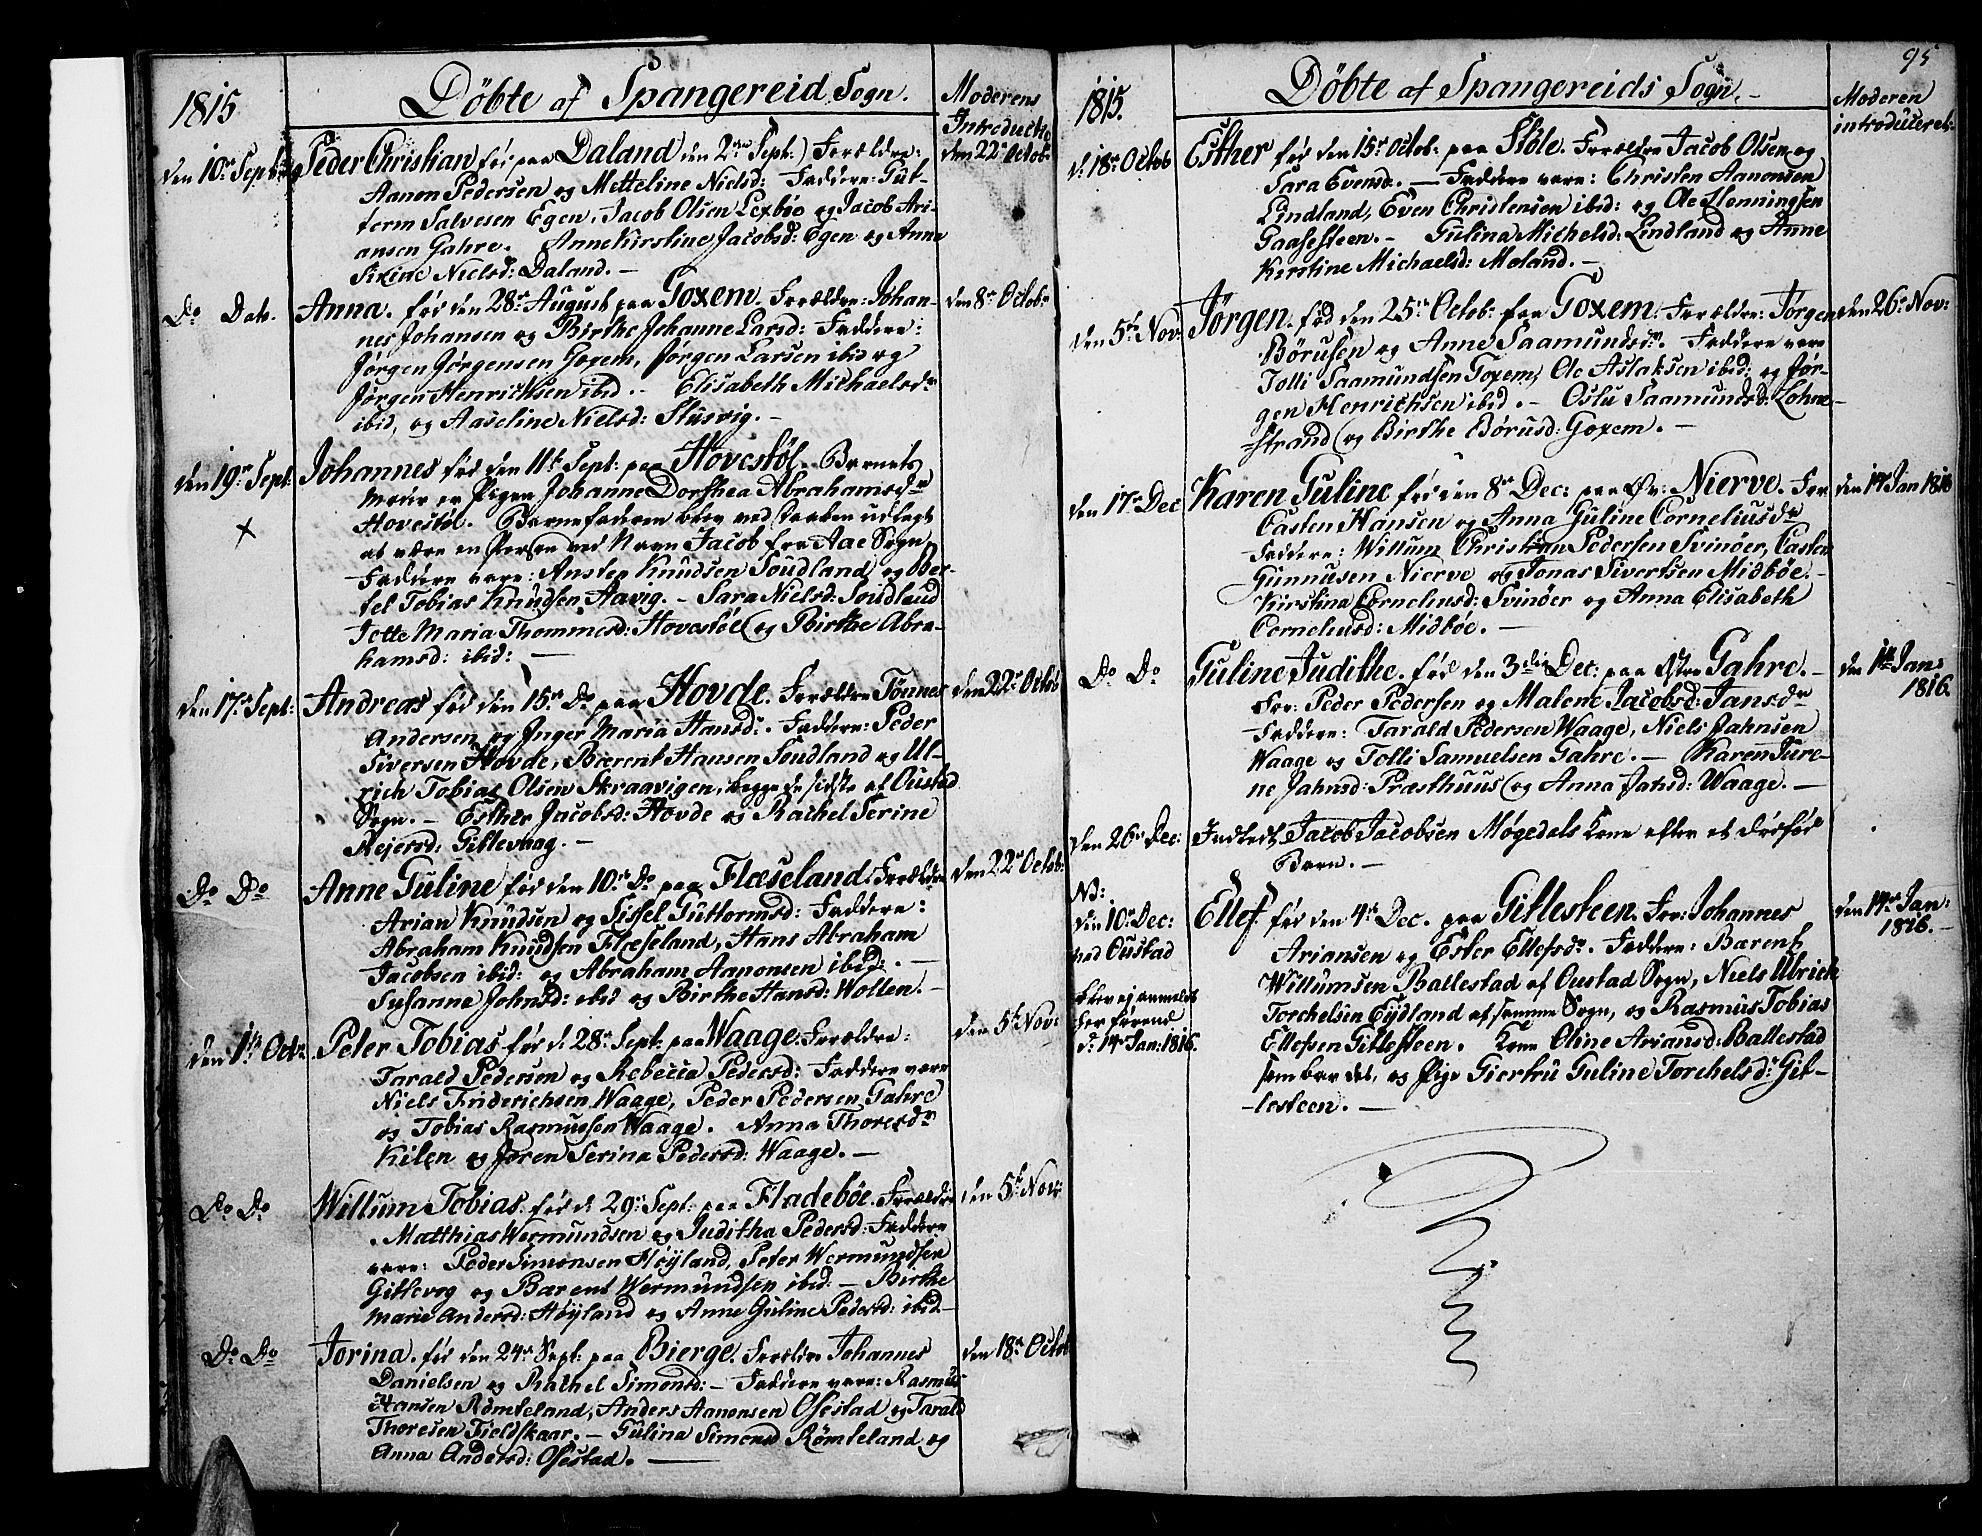 1815
Döbte af Spangereid Sogn.
Moderens
Introduction
den 10de Sept:
Peder Christian fød paa Daland den 2den Sept:) Forældre:
den 22de Octob:
Aanon Pedersen og Metteline Nielsd: Faddere: Gut-
torm Salvesen Egen, Jacob Olsen Lexböe og Jacob Ari-
ansen Gahre. Anne Kirstine Jacobsd: Egen og Anna
Sirine Nielsd: Daland. —
Do Dato.
Anna. fød den 28de August paa Goxem. Forældre: Johan-
den 8de Octobr
nes Johansen og Birthe Johanne Larsd: Faddere:
Jörgen Jörgensen Goxem, Jörgen Larsen ibid og
Jörgen Henrichsen ibid. — Elisabeth Michaelsdr
ibid, og Aaseline Nielsd: Slusvig. —
den 19de Sept:
Johannes fød den 11te Sept: paa Hovestöl. Barnets
Moder er Pigen Johanne Dorthea Abrahamsdr
Hovestöl. Barnefaderen blev ved Daaben udlagt
at være en Person ved Navn Jacob fra Aae Sogn,
Faddere vare: Ansten Knudsen Soudland og Ber-
tel Tobias Knudsen Aavig. — Sara Nielsd: Soudland
Jette Maria Thommesd: Hovestöl og Birthe Abra-
hamsd: ibid: —
den 17de Sept:
Andreas fød den 15de Do paa Hovde. Forældre Tönnes
den 22de Octob
Andersen og Inger Maria Hansd:. Faddere: Peder
Siversen Hovde, Bærent Hansen Soudland og Ul-
rich Tobias Olsen Skraavigen, begge de sidste af Oustad
Sogn. — Esther Jacobsd: Hovde og Rachel Serine
Rejersd: Gitlevaag. —
Do Do
Anne Guline fød den 10de Do paa Flæseland. Forældre
den 22de Octob:
Arian Knudsen og Sissel Guttormsd: Faddere:
Abraham Knudsen Flæseland, Hans Abraham
Jacobsen ibid: og Abraham Aanonsen ibid:. —
Susanne Johnsd: ibid og Birthe Hansd: Wollen. —
den 1ste Octr
Peter Tobias fød d. 28de Sept: paa Waage. Forældre:
den 5te Nov:
Tarald Pedersen og Rebecca Pedersd: Faddere vare
Niels Friderichsen Waage, Peder Pedersen Gahre
og Tobias Rasmussen Waage. Anna Thoresdr
Kilen og Joren Serina Pedersd: Waage. —
Do Do
Willum Tobias. fød d. 29de Sept: paa Fladebøe. Forældre
den 5te Nov:
Matthias Wermundsen og Juditha Pedersd: Faddere
vare: Peder Simonsen Höyland, Peter Wermundsen
Gitlevog og Barent Wermundsen ibid. — Birthe
Marie Andersd: Höyland og Anne Guline Pedersd: ibid.
Do Do
Jorina. fød den 24de Sept: paa Bierge. Forældre Johannes
den 18de Octob
Danielsen og Rachel Simonsd: — Faddere vare: Rasmus
Hansen Römteland, Anders Aanonsen Osestad og Tarald
Thoresen Fieldskaar. — Gulina Simonsd Römteland og
Anna Andersd: Osestad. —
95
1815.
Döbte af Spangereids Sogn. —
Moderen
introduceret
d. 18de Octob
Esther fød den 15de Octob. paa Stöle. Forældre Jacob Olsen og
Sara Evensd:. — Faddere vare: Christen Aanonsen
Lindland, Even Christensen ibid: og Ole Henningsen
Gaasesteen. — Gulina Michelsd: Lindland og Anne
Kirstine Michaelsd: Meland. —
den 5te Nov:
Jörgen. fød den 25de Octob. paa Goxem. Forældre: Jörgen
den 26de Nov:
Börusen og Anne Saamundsdr. Faddere vare
Tolli Saamundsen Goxem, Ole Aslaksen ibid: og Jör-
gen Henrichsen ibid. — Oslu Saamundsd: Lohne-
strand og Birthe Börusd: Goxem. —
den 17de Dec
Karen Guline fød den 8de Dec: paa Öv: Nierve. For
den 14 Jan 1816
Casten Hansen og Anna Guline Corneliusdr
Faddere: Willum Christian Pedersen Svinöer, Casten
Gunnusen Nierve og Jonas Sivertsen Midböe. —
Kirstina Corneliusd: Svinöer og Anna Elisabeth
Corneliusd: Midböe. —
Do Do
Guline Judithe. fød den 3die Dec: paa Östre Gahre. —
den 1ste Jan:
1816.
For: Peder Pedersen og Malene Jacobsd: Jansdr
Faddere: Tarald Pedersen Waage, Niels Jahnsen
Waage og Tolli Samuelsen Gahre. — Karen Jure-
ne Jahnsd: Præsthuus og Anna Jahsd: Waage. —
den 26de Dec:
Indledt Jacob Jacobsen Mögedals Kone efter et dødfød
Barn. —
Nb:
den 10de Dec:
ved Oustad
blev ej anmeldt
her førend
d. 14de Jan: 1816.
Ellef fød den 4de Dec. paa Gitlesteen. For: Johannes
den 14de Jan:
1816. —
Ariansen og Ester Ellefsdr. Faddere: Bærent
Willumsen Ballestad af Oustad Sogn, Niels Ulrich
Torchelsen Eydland af samme Sogn, og Rasmus Tobias
Ellefsen Gitlesteen. Kone Oline Ariansd: Ballestad
som bar det, og Pige Giertru Guline Torchelsd: Git-
lesteen. —